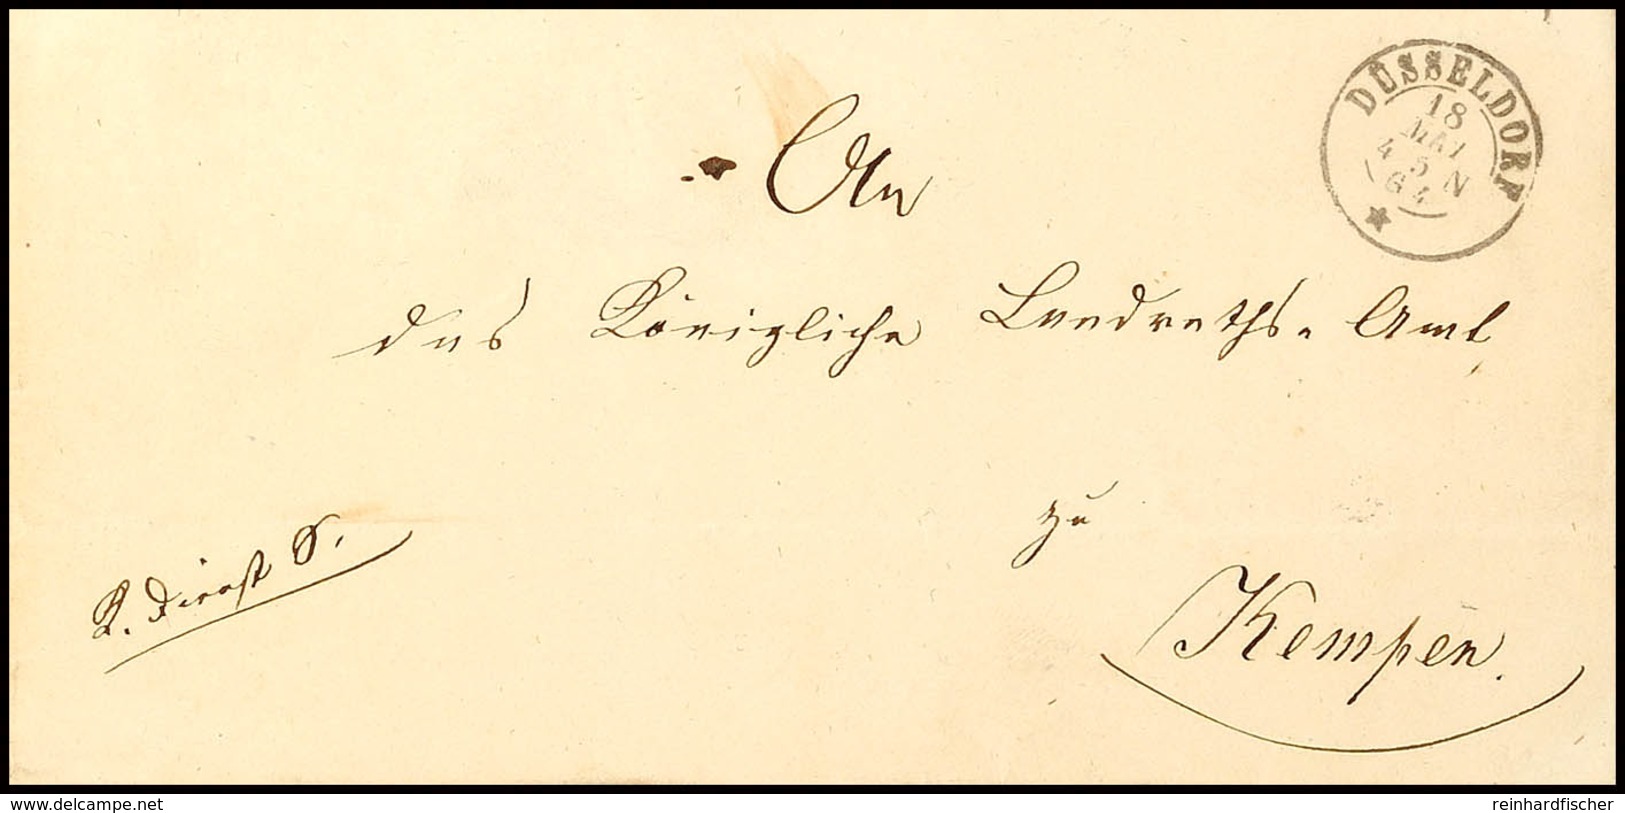 DÜSSELDORF
18
MAI
4 5 N
64
An
das Königliche Landraths-Amt
zu
K. Dienst S.
Kempen.
www.delcampe.net
reinhardfischer